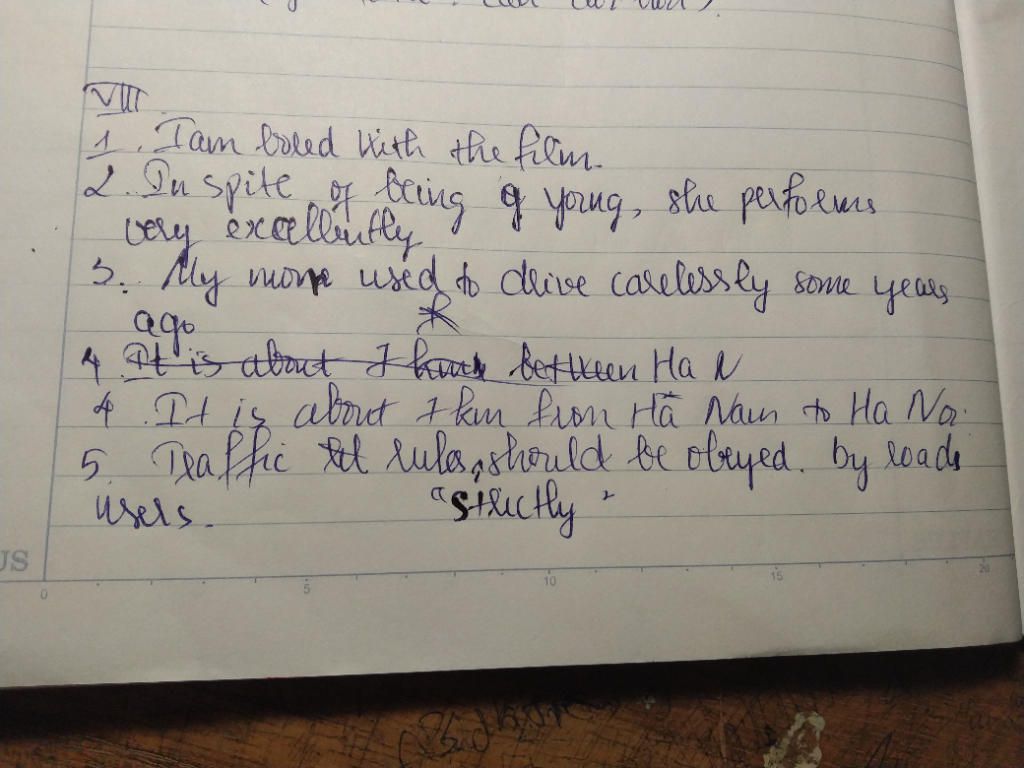 VIII
1. I am bored with the film.
2. In spite of being young, she performs
very excellently
3. My mom used to drive carelessly some years
ago
4 It is about 7 km between Ha N
4. It is about 7 km from Hà Nam to Ha Noi.
5. Traffic rules, should be obeyed. by roads
users. "strictly"
US
0 5 10 15 20